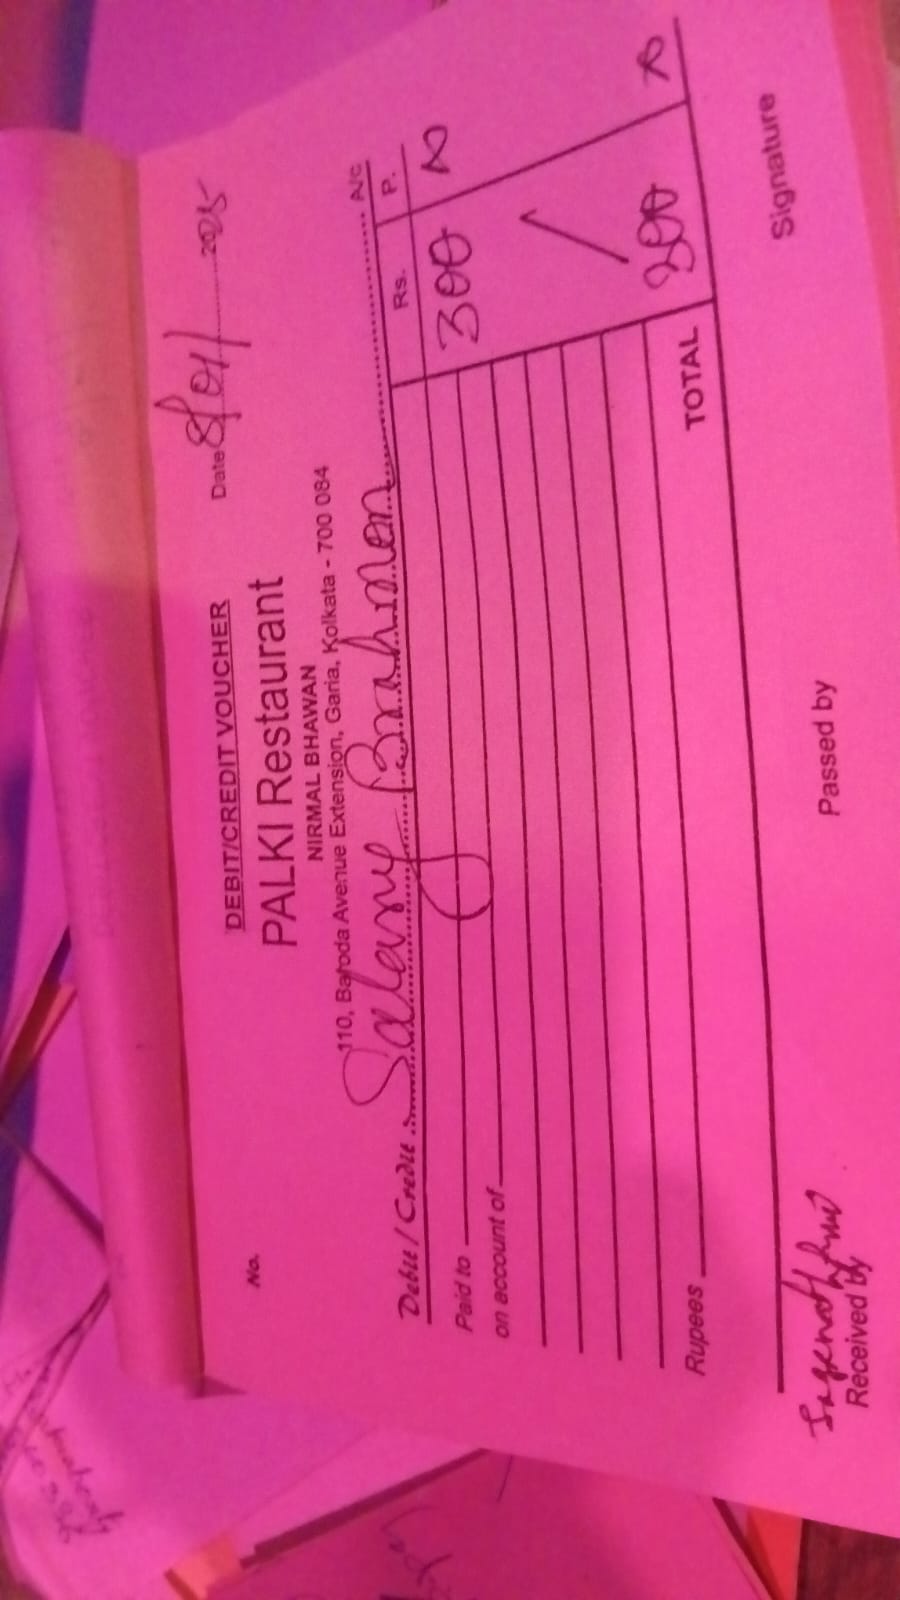 No.
DEBIT/CREDIT VOUCHER
Date 8/01/ 2025
PALKI Restaurant
NIRMAL BHAWAN
110, Baroda Avenue Extension, Garia, Kolkata - 700 084
Debit / Credit Salary Brahmen A/c
Rs. P.
Paid to 300
on account of
Rupees TOTAL 300
Received by Passed by Signature